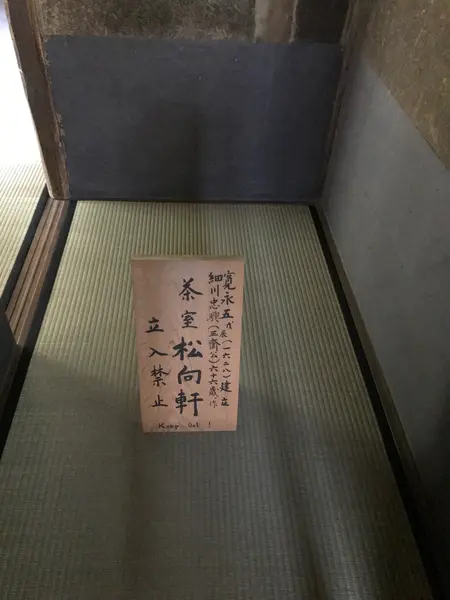 寛永五戊辰(一六二八)建立
細川忠興(三斎公)六十六歳作
茶室 松向軒
立入禁止
Keep Out !